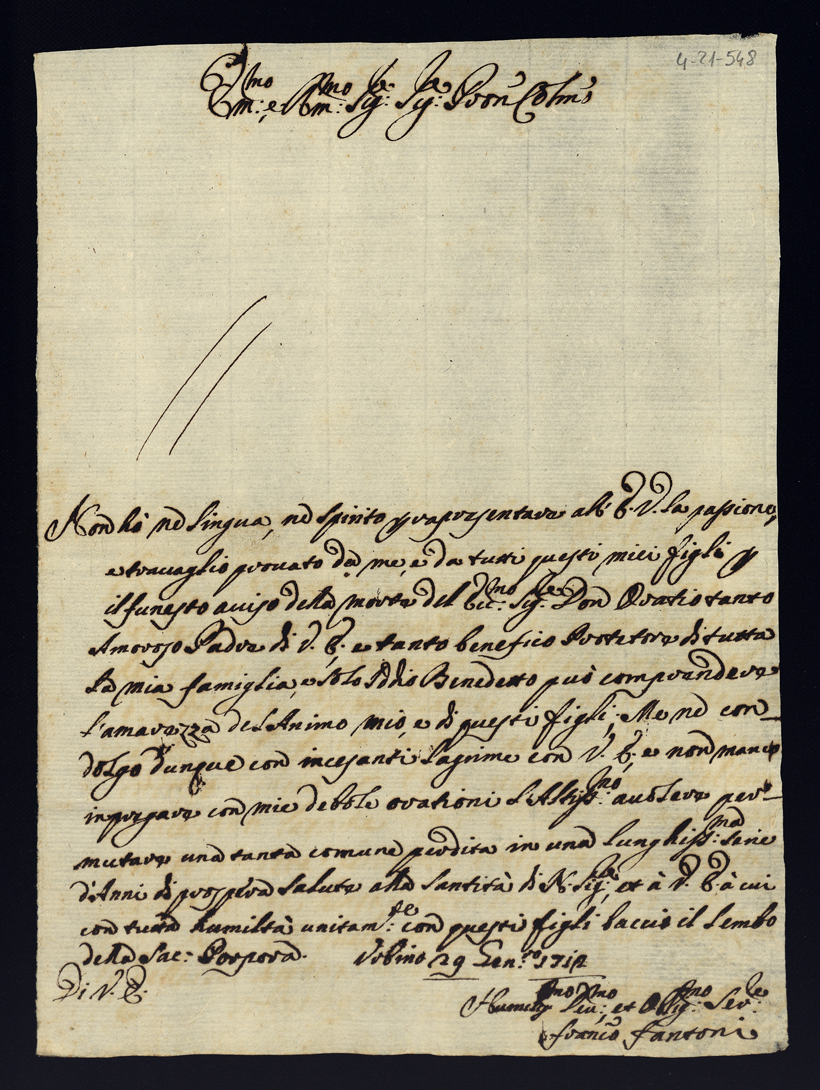 4-21-548
Em:mo e Rm:mo Sig:re Sig:re Pron Colmo
Non hò ne lingua, ne spirito p rapresentare all' E. V. la passione,
e travaglio provato da me, e da tutti questi miei figli p
il funesto aviso della morte del Ecc:mo Sig:re Don Oratio tanto
Amoroso Padre di V. E. e tanto benefico Protetore di tutta
la mia famiglia, e solo Iddio Benedetto può comprendere
l'amarezza del Animo mio, e di questi figli; Me ne con_
dolgo dunque con incesanti lagrime con V. E. e non manco
in pregare con mie debole orationi l'Altiss:mo a voler per_
mutare una tanta comune perdita in una lunghiss:ma serie
d'Anni di prospera salute alla Santità di N. Sig:re, et à V. E. à cui
con tutta humiltà unitam:te con questi figli baccio il lembo
della Sac: Porpora. Urbino 29 Gen:ro 1712
Di V. E.
Humiliss:mo Div:mo, et Oblig:mo Ser:re
Franco Fantoni